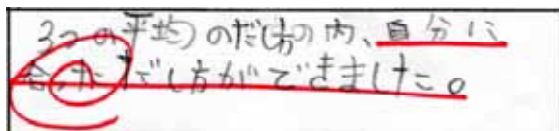 3つの平均のだし方の内、自分に
合っただし方ができました。